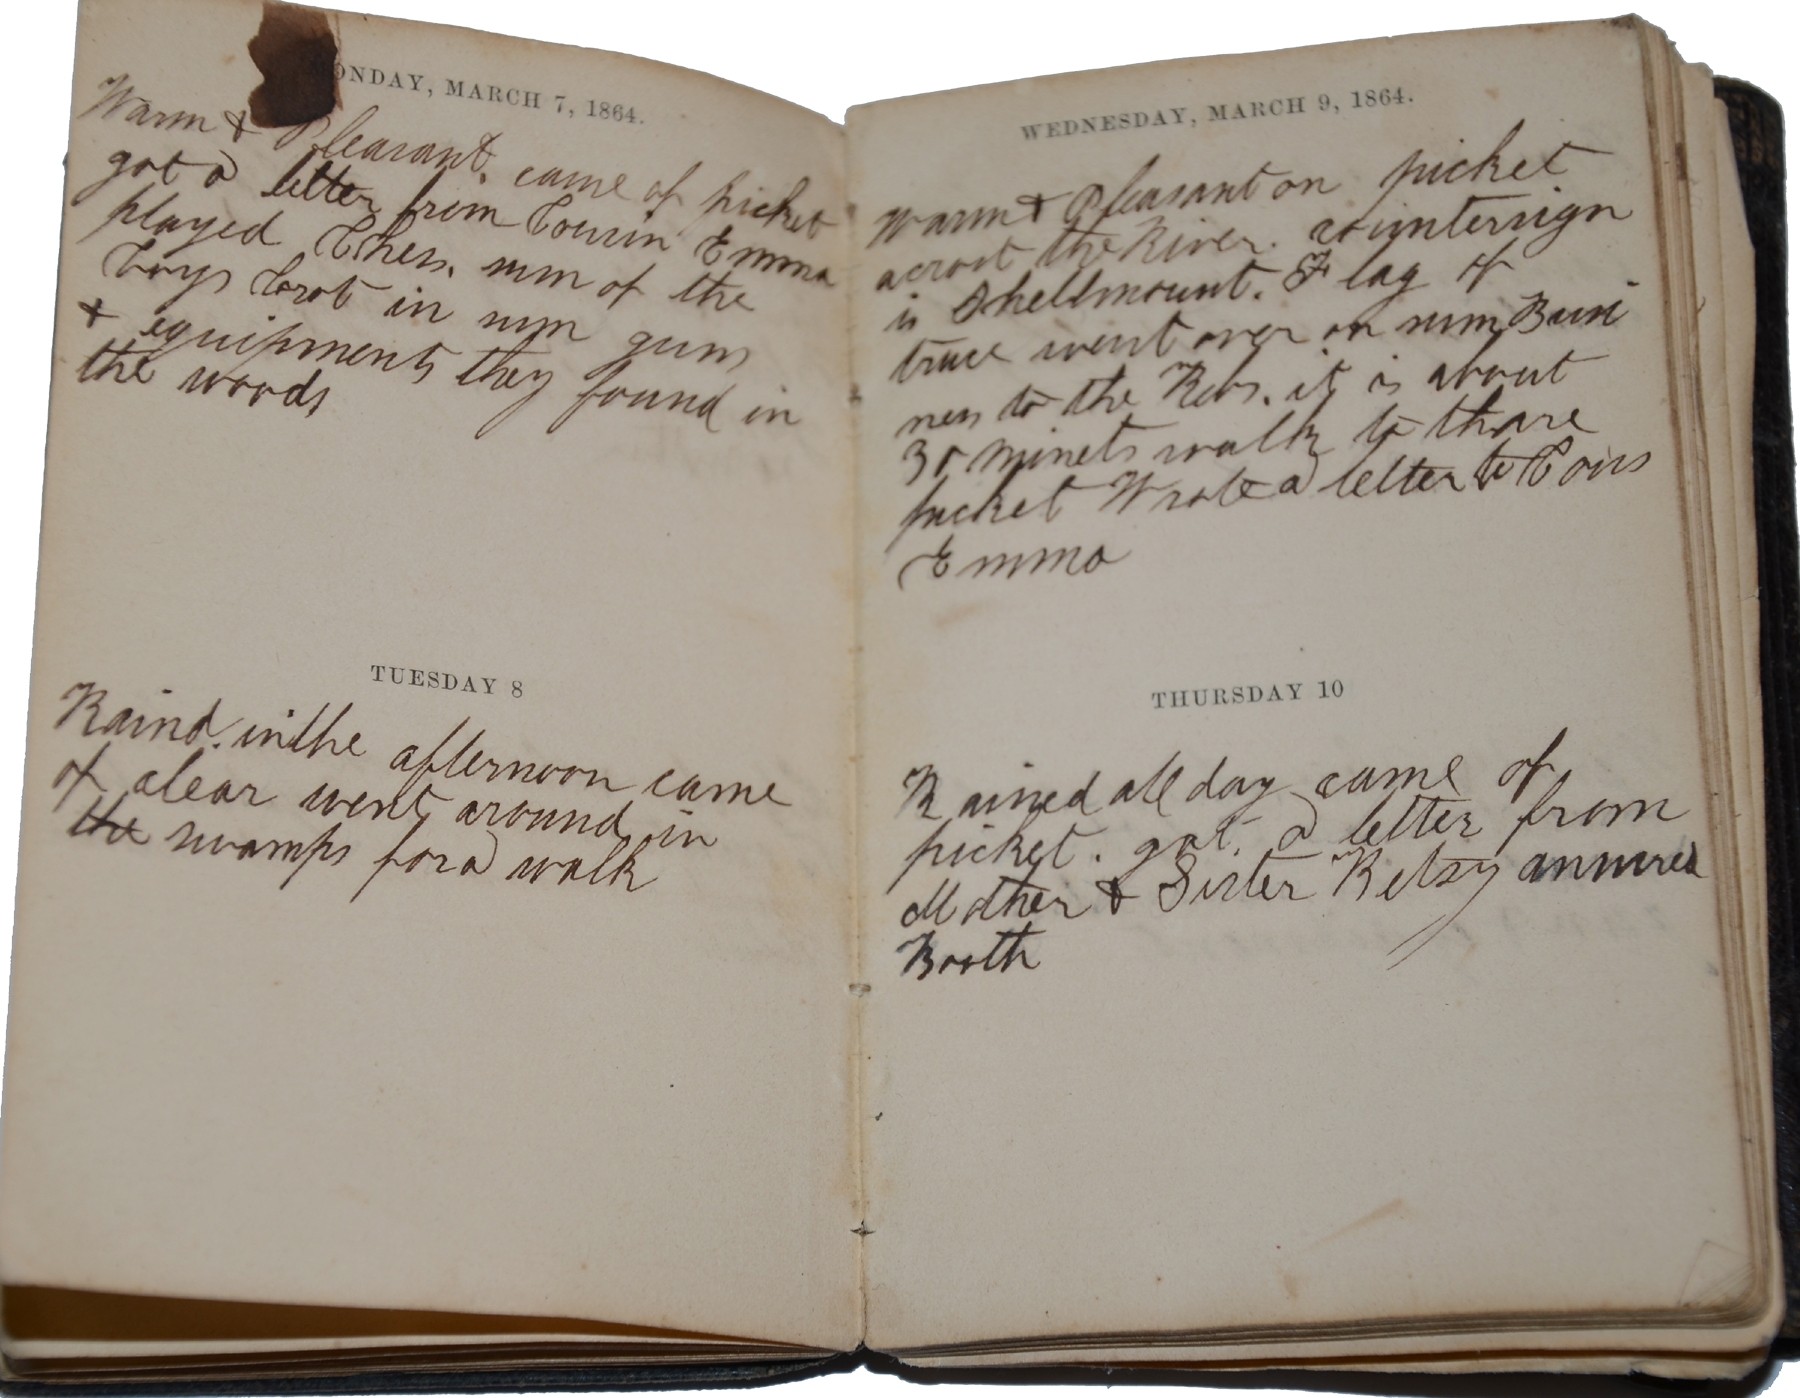 ONDAY, MARCH 7, 1864.
Warm & Pleasant. came of picket
got a letter from Cousin Emma
played Chess. sum of the
boys brot in sum guns
& equipments they found in
the woods
TUESDAY 8
Raind. in the afternoon came
of clear went around in
the swamps for a walk
WEDNESDAY, MARCH 9, 1864.
Warm & Pleasant on picket
acrost the River. countersign
is Shellmount. Flag of
truce went over on sum Busi
ness to the Rebs. it is about
30 minets walk to thare
picket Wrote a letter to Cous
Emma
THURSDAY 10
Rained all day came of
picket. got a letter from
Mother & Sister Betsy answred
Booth